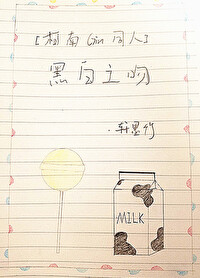 [柯南Gin同人]
黑白之吻
·轩墨竹
MILK